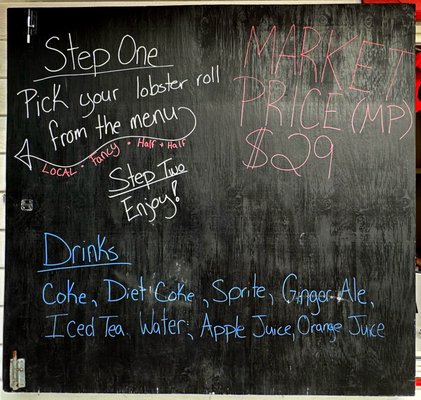 Step One
Pick your lobster roll
from the menu
LOCAL • fancy • Half + Half
Step Two
Enjoy!
MARKET
PRICE (MP)
$29
Drinks
Coke, Diet Coke, Sprite, Ginger Ale,
Iced Tea, Water, Apple Juice, Orange Juice